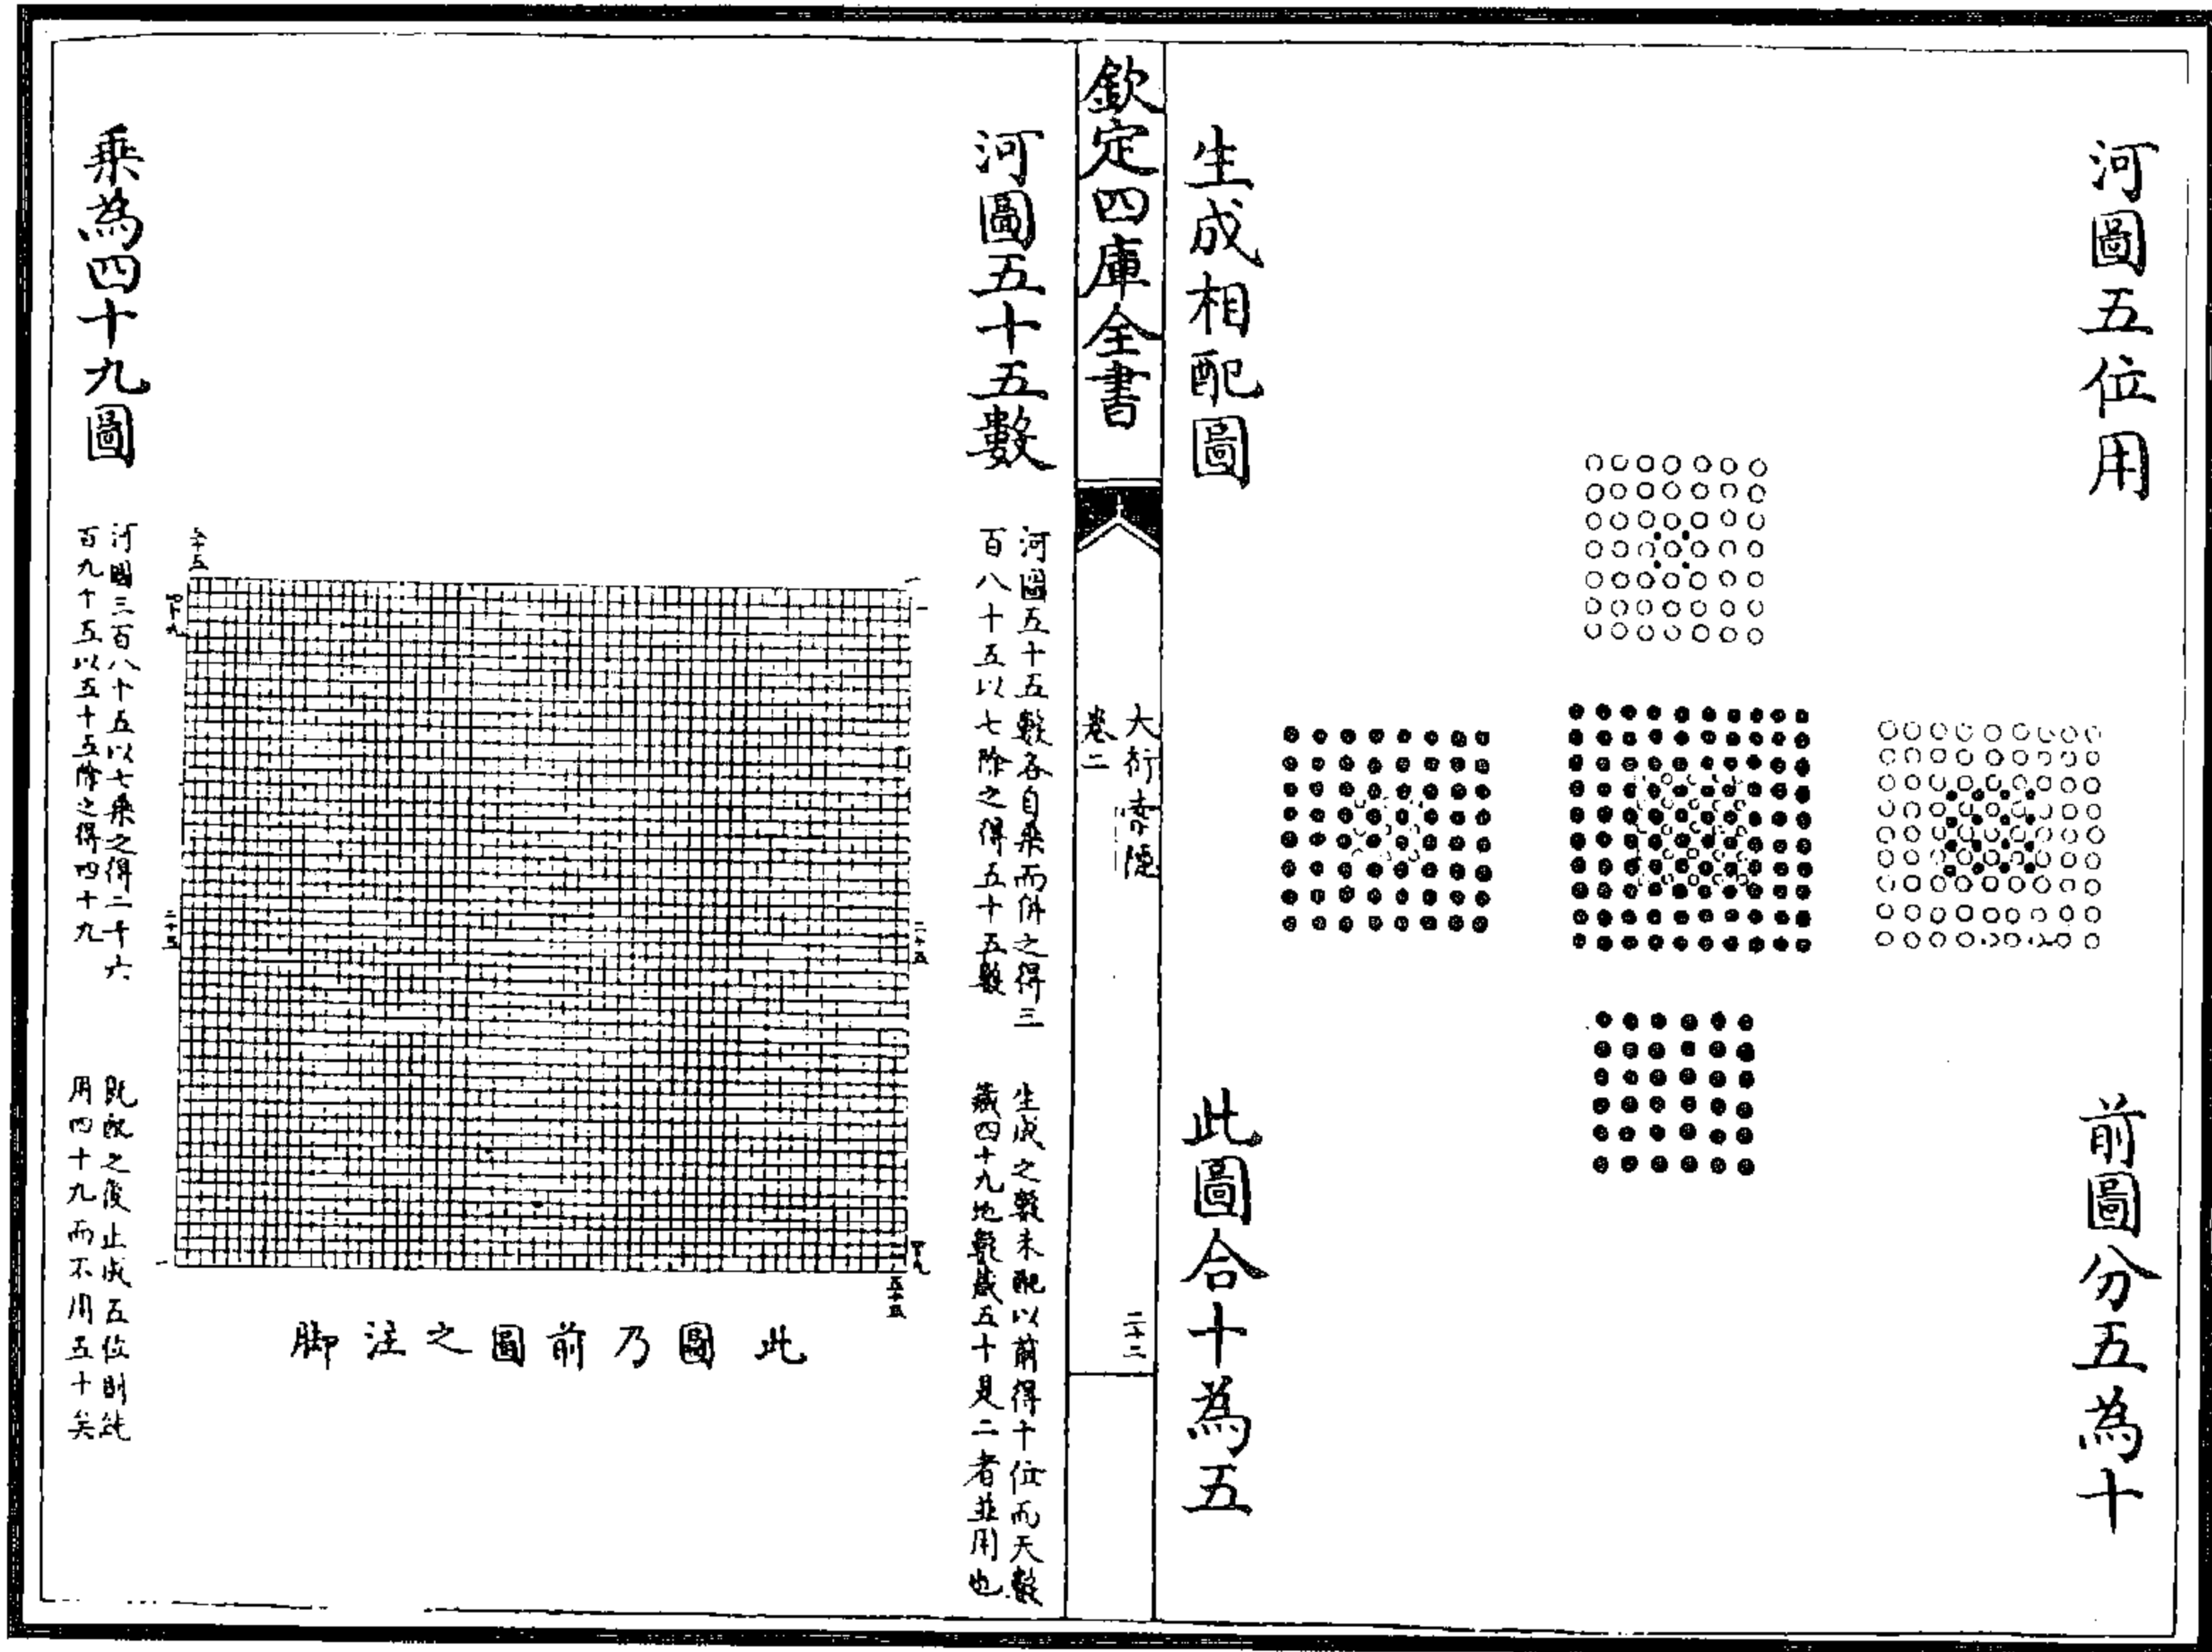 河圖五位用
前圖分五為十
生成相配圖
此圖合十為五
欽定四庫全書
大衍索隱
卷二
二十二
河圖五十五數
河圖五十五數各自乘而併之得三
百八十五以七除之得五十五數
生成之數未配以前得十位而天數
藏四十九地數藏五十是二者並用也
一
一
二十五
四十九
五十五
此圖乃前圖之注脚
五十五
四十九
二十五
一
乘為四十九圖
河圖三百八十五以七乘之得二千六
百九十五以五十五除之得四十九
既配之後止成五位則純
用四十九而不用五十矣